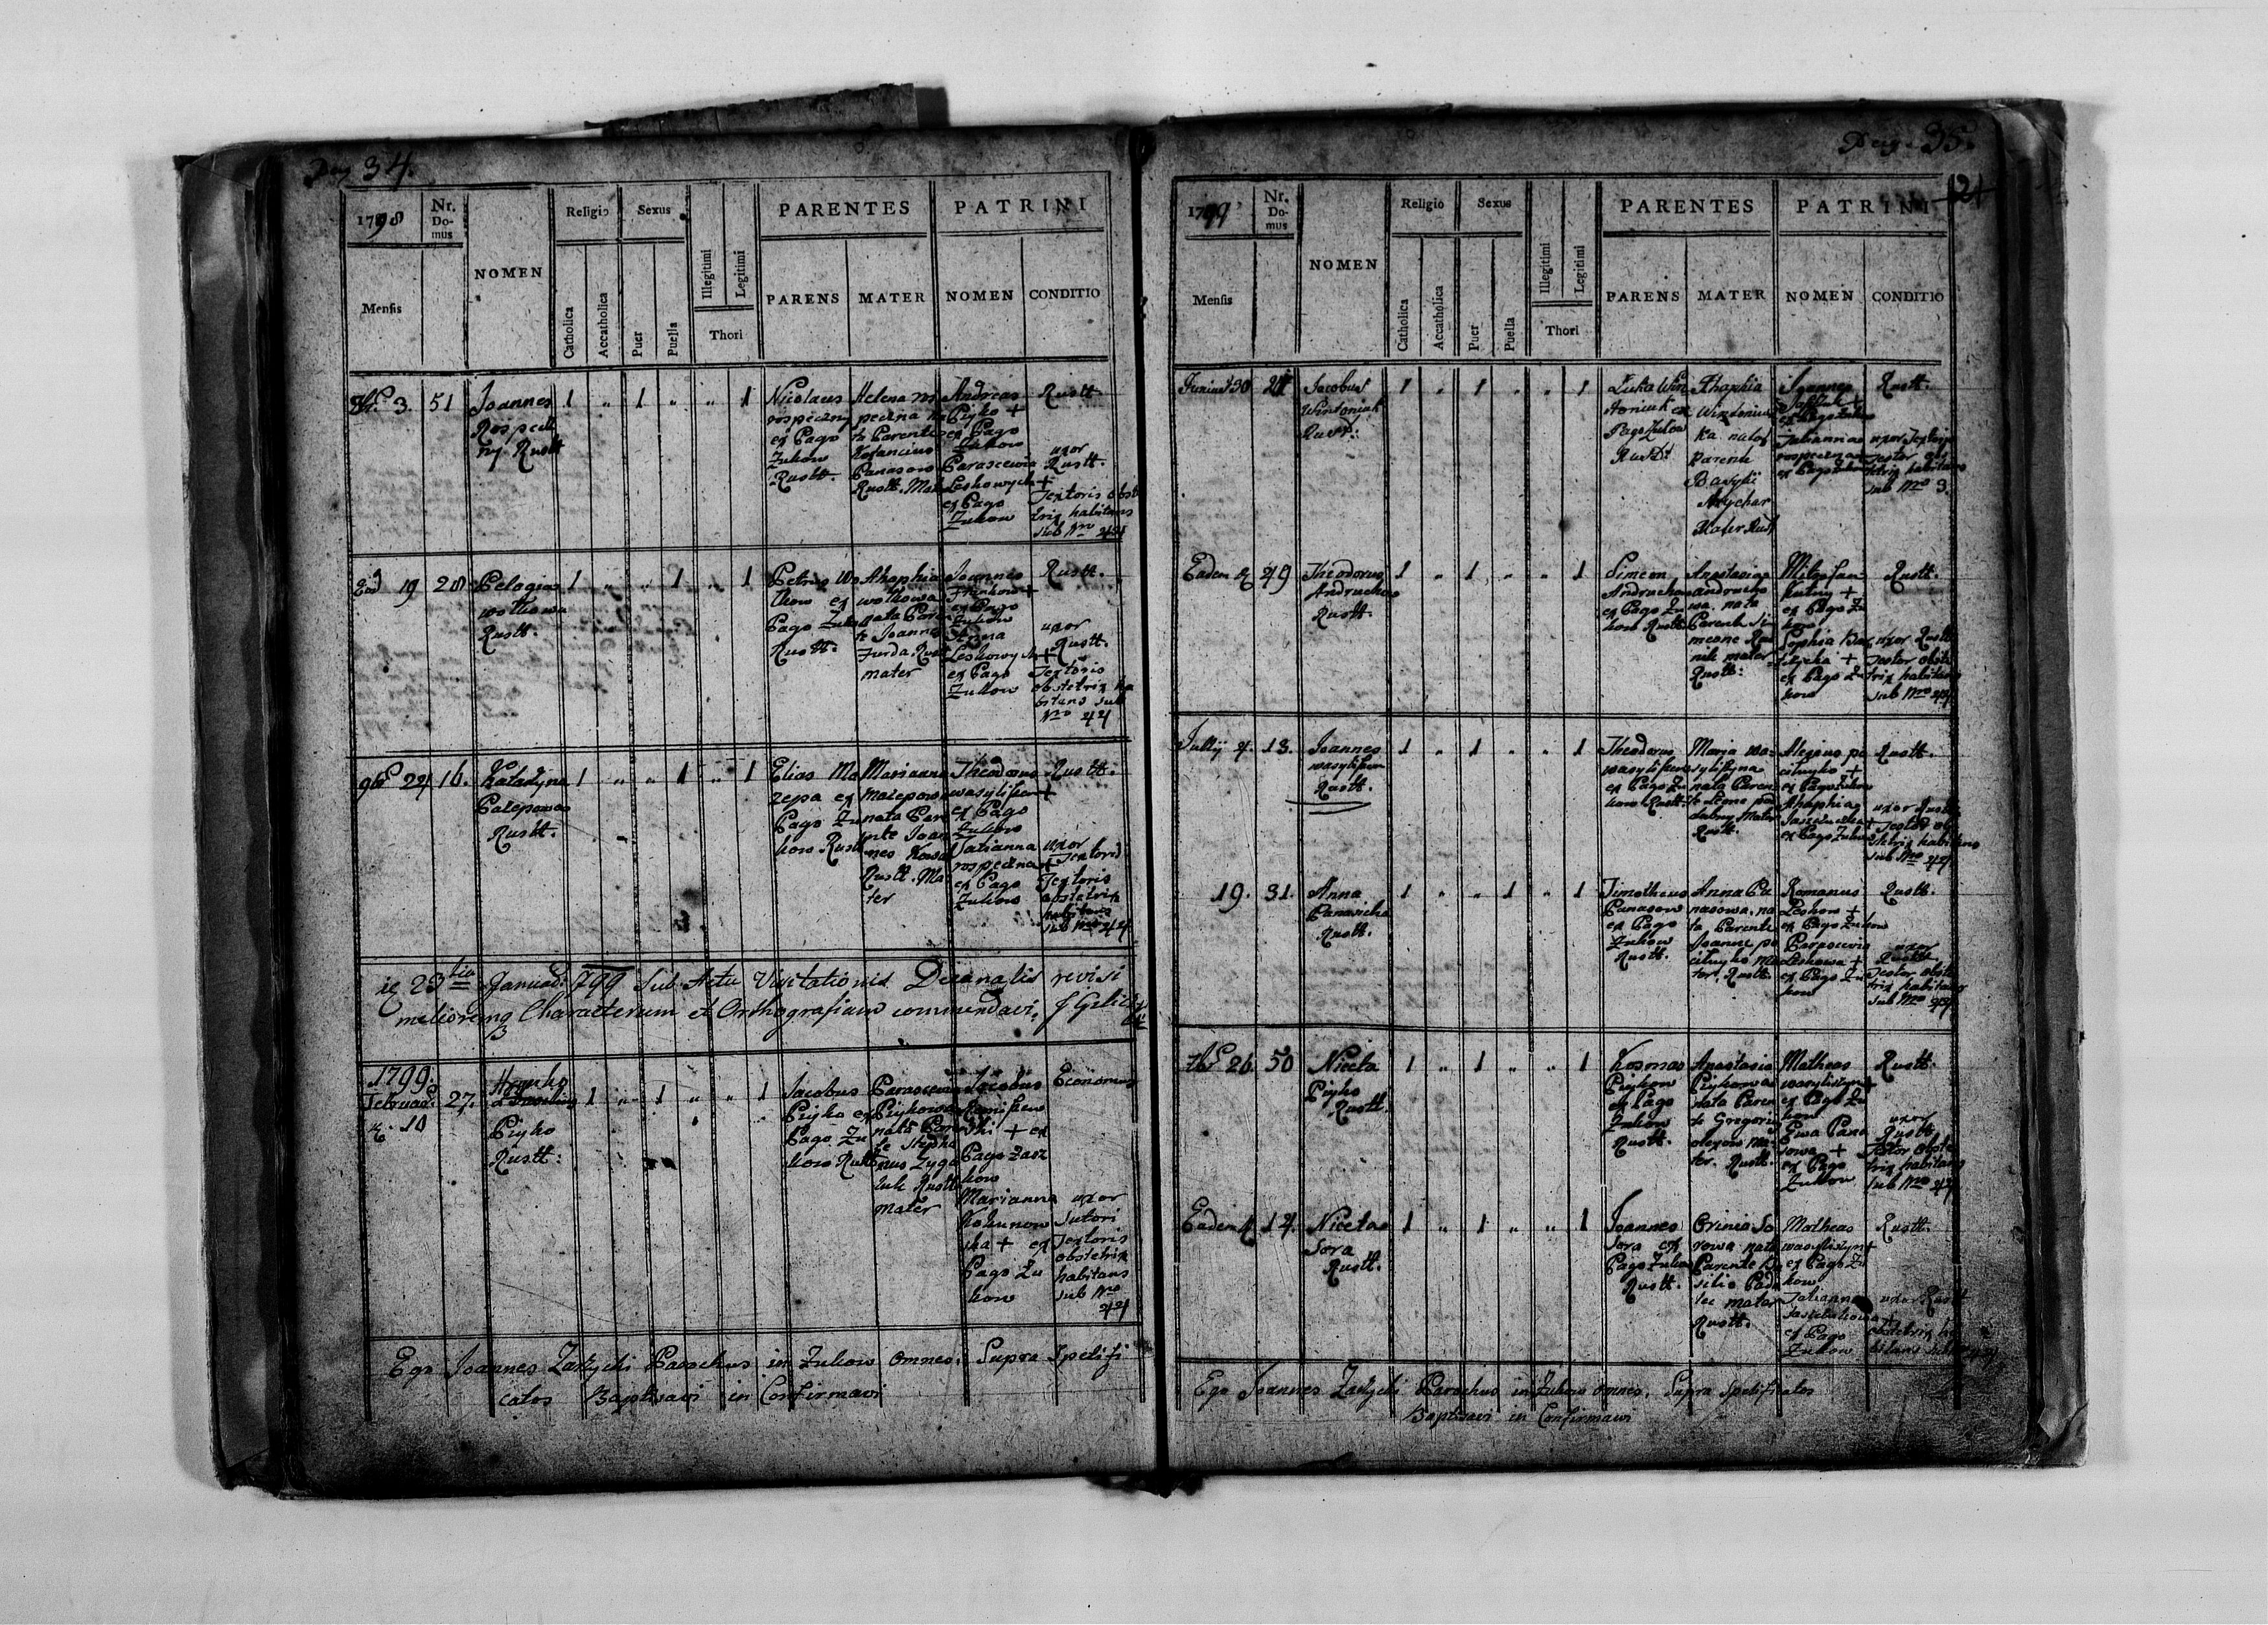 Pag 34.
1798
Nr. Domus
NOMEN
Religio
Sexus
Illegitimi
Legitimi
PARENTES
PATRINI
Mensis
Catholica
Accatholica
Puer
Puella
Thori
PARENS
MATER
NOMEN
CONDITIO
3. 51
Joannes
Rustt
1 " 1 " " 1
Nicolaus
ex Pago
Zukow
Rustt.
Helena
Parente
Rustt. Mat
Andreas
Piyko +
ex Pago
Zukow
Parascewia
Leskowych +
ex Pago
Zukow
Rustt.
uxor
Rustt.
Textoris obste
trix habitans
sub Nro 44
19 28
Pelogia
wotkowa
Rustt.
1 " " 1 " 1
Petrus Wo
tkow ex
Pago Zuko
Rustt.
Ahaphia
wotkowa
nata Paren
te Joanne
Furda. Rustt
mater
Joannes
ex Pago
Zukow
Anna
Leskowych +
ex Pago
Zukow
Rustt.
uxor
Rustt.
Textoris
obstetrix ha
bitans sub
Nro 44
9br 24 16.
Katarzyna
Rustt.
1 " " 1 " 1
Elias Ma
zepa ex
Pago Zu
kow Rustt
Marianna
mazepowa
nata Pare
nte Joan
nes Kowal
Rustt. Ma
ter
Theodorus
wasylisien +
ex Pago
Zukow
Tatianna
rospeczna +
ex Pago
Zukow
Rustt.
uxor
Textoris
Textoris
obstetrix
habitans
sub Nro 44
23tia Januar: 799 Sub Actu Visitationis Decanalis revisi
melioremq Characterum et Orthografiam commendavi.
1799.
Februar:
10
27.
Hrycko
Piyko
Rustt:
1 " 1 " " 1
Jacobus
Piyko ex
Pago Zu
kow Rustt
Parascewia
Piykowa
nata Paren
te Stepha
nus Zyga
luk Rustt
mater
Jacobus
ski + ex
Pago Zasz
kow
Marianna
ska + ex
Pago Zu
kow
Economus
uxor
Sutori
Textoris
obstetrix
habitans
sub Nro
44
Ego Joannes Zarzycki Parochus in Zukow omnes. Supra Spetifi
catos Baptisavi in Confirmavi
Pag. 35.
1799
Nr. Domus
NOMEN
Religio
Sexus
Illegitimi
Legitimi
PARENTES
PATRINI
Mensis
Catholica
Accatholica
Puer
Puella
Thori
PARENS
MATER
NOMEN
CONDITIO
Junius 30
Jacobus
Wintoniak
Rust:
1 " 1 " " 1
Luka Win
toniak ex
Pago Zukow
Rustt
Ahaphia
Wintoniu
ka nata
Parente
Basyli
Mater Rust
Joannes
ex Pago Zukow
Tatianna
rospeczna
ex Pago Zukow
Rustt.
uxor Textoris
Textor obs
tetrix habitans
sub Nro 3.
Eadem 49
Theodorus
Andruchow
Rustt.
1 " 1 " " 1
Simeon
Andruchow
ex Pago Zu
kow Rustt
Anastasia
andrucho
wa. nata
Parente Si
meone
mater
Rustt:
Kutny +
ex Pago Zu
kow
Sophia
+
ex Pago Zu
kow
Rustt.
uxor Rustt
Textor obste
trix habitans
sub Nro 44
Julij 4. 13.
Joannes
wasylisien
Rustt.
1 " 1 " " 1
Theodorus
wasylisien
ex Pago Zu
kow Rustt.
Maria wa
sylisyna
nata Paren
te Leone
Mater
Rustt.
Alexius po
citnyko +
ex Pago Zukow
Ahaphia
ex Pago Zukow
Rustt.
uxor Rustt.
Textor ob
stetrix habitans
sub Nro 44
19. 31.
Anna
Panasicha
Rustt.
1 " " 1 " 1
Timotheus
Panasow
ex Pago
Zukow
Rustt.
Anna Pa
nasowa. na
ta Parente
Joanne po
citnyko Ma
ter. Rustt.
Romanus
Leskow +
ex Pago Zukow
Parascewia
Leskowa +
ex Pago Zu
kow
Rustt.
uxor
Rustt.
Textor obste
trix habitans
sub Nro 44
26 50
Niceta
Piyko
Rustt.
1 " 1 " " 1
Kosmas
Piykow
ex Pago
Zukow
Rustt.
Anastasia
Piykowa
nata Paren
te Gregorij
olexow Ma
ter. Rustt.
Matheas
wasylistyn +
ex Pago Zu
kow
Ewa Pana
sowa +
ex Pago
Zukow
Rustt.
uxor
Rustt.
Textor obste
trix habitans
sub Nro 44
Eadem 14.
Niceta
Sora
Rustt.
1 " 1 " " 1
Joannes
Sora ex
Pago Zukow
Rustt.
Orinia So
rowa nata
Parente Ba
silio
mater
Rustt.
Matheas
wasylistyn +
ex Pago Zu
kow
Tatianna
ex Pago
Zukow
Rustt.
uxor Rustt
obstetrix ha
bitans
Ego Joannes Zarzycki Parochus in Zukow omnes. Supra Spetificatos
Baptisavi in Confirmavi